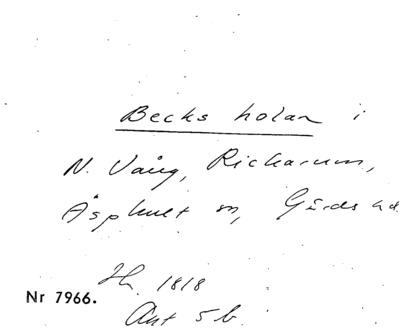 Becks holar i
N. Vång, Rickarum,
Äsphult sn, Gärds hd
Hs. 1818
Nr 7966.
Ant 5 b.